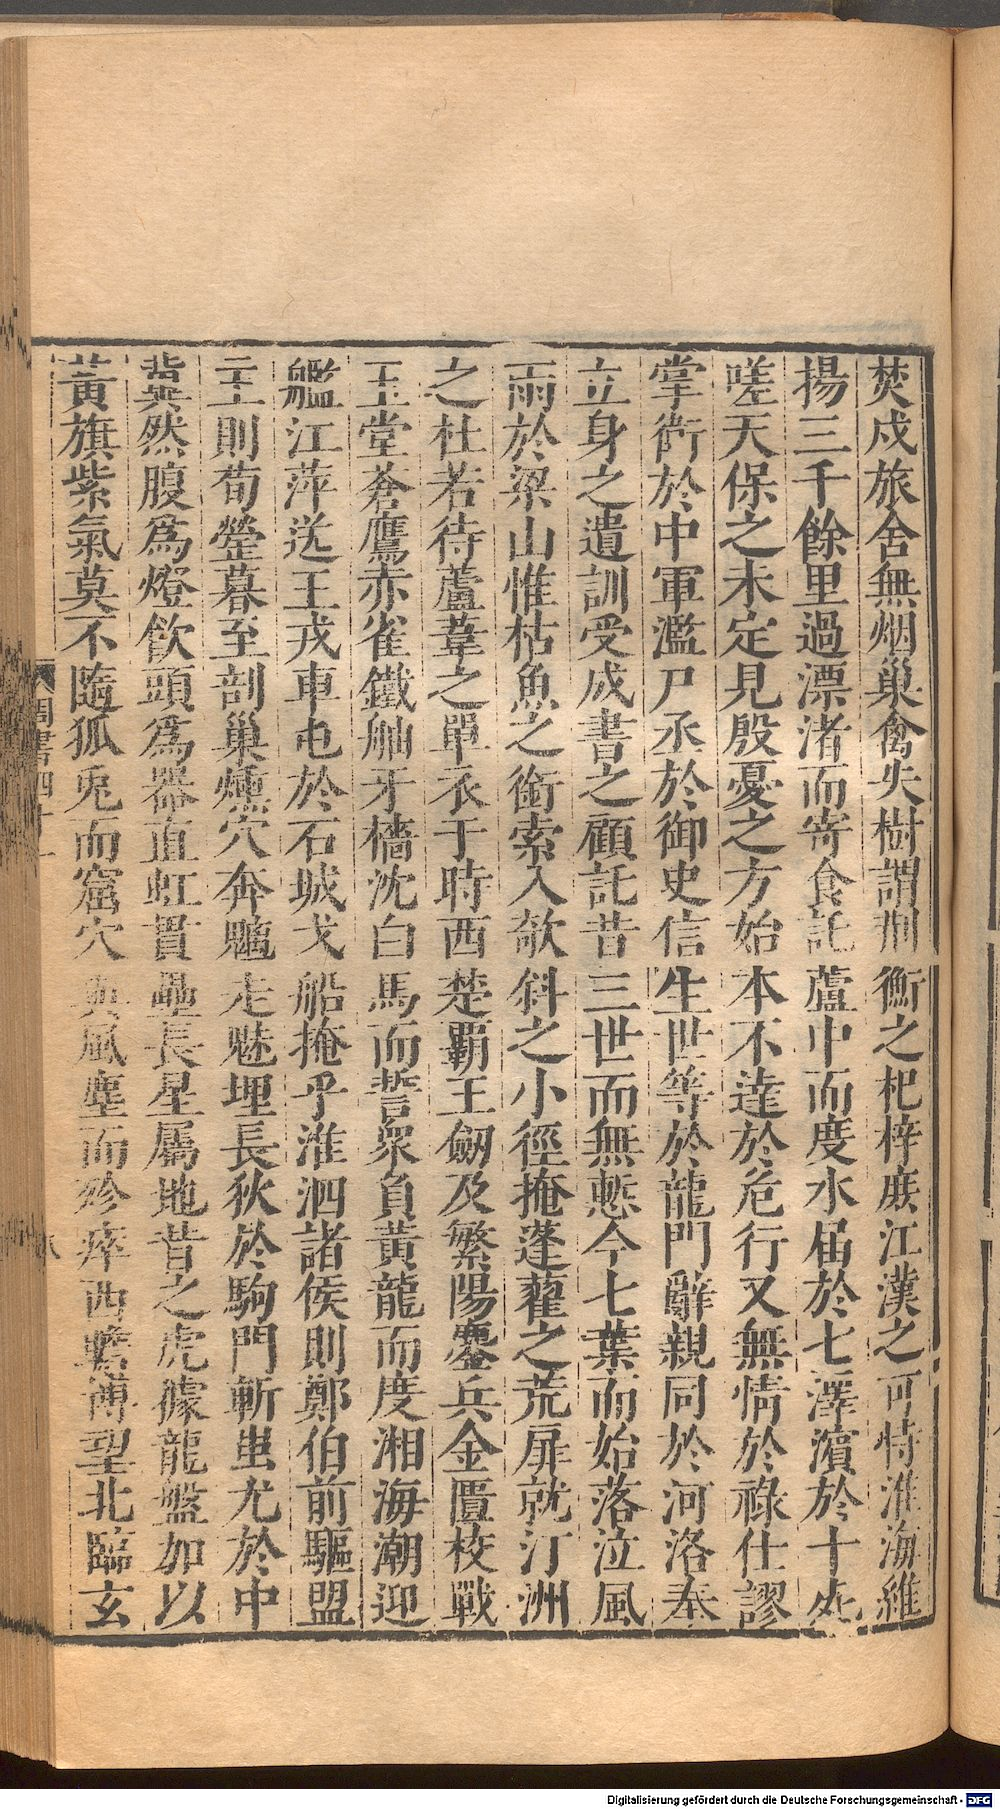 焚戍旅舍無烟巢禽失樹謂荆衡之杞梓庶江漢之可恃淮海維
揚三千餘里過漂渚而寄食託蘆中而度水届於七澤濱於十死
嗟天保之未定見殷憂之方始本不達於危行又無情於祿仕謬
掌衛於中軍濫尸丞於御史信生世等於龍門辭親同於河洛奉
立身之遺訓受成書之顧託昔三世而無慙今七葉而始落泣風
雨於梁山惟枯魚之銜索入欹斜之小徑掩蓬藋之荒扉就汀洲
之杜若待蘆葦之單衣于時西楚霸王劒及繁陽鏖兵金匱校戰
玉堂蒼鷹赤雀鐵舳牙檣沈白馬而誓衆負黃龍而度湘海潮迎
艦江萍送王戎車屯於石城戈船掩乎淮泗諸侯則鄭伯前驅盟
主則荀罃暮至剖巢燻穴奔魑走魅埋長狄於駒門斬蚩尤於中
冀然腹爲燈飲頭爲器直虹貫壘長星屬地昔之虎據龍盤加以
黃旗紫氣莫不隨狐兔而窟穴與風塵而殄瘁西瞻博望北臨玄
周書四十一
Digitalisierung gefördert durch die Deutsche Forschungsgemeinschaft - DFG